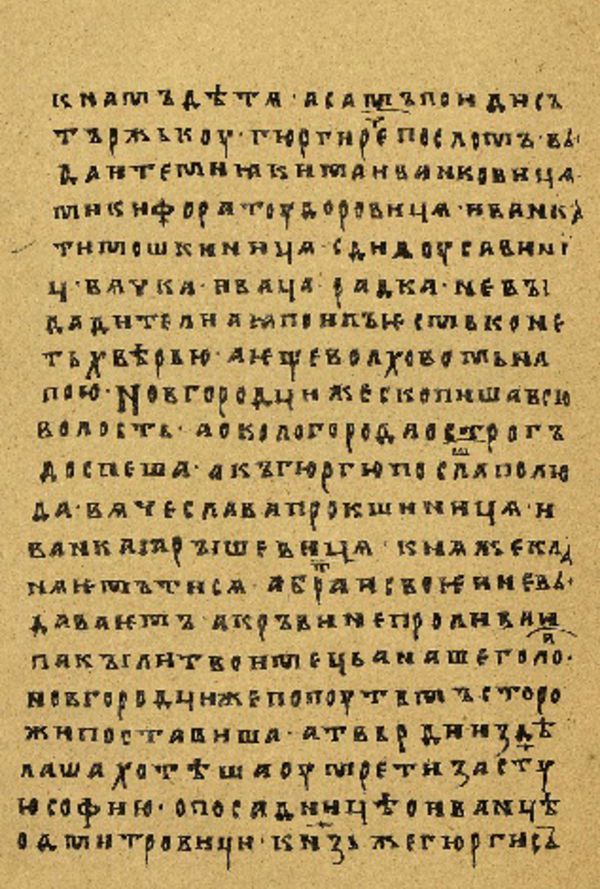 к намъ дѣтѧ · а самъ поиди съ
тържькоу · гюргиⷤ ре посломъ · вꙑ
даите ми ꙗкима иванковицѧ
микифора тоудоровицѧ · иванка
тимошкиницѧ · сдилоу савини
ц · вачка · иваца · радка · не вꙑ
дадите ли а ꙗ поилъ ѥсмь коне
тьхвѣрью · а ѥще волховомь на
пою · Новгородци же скопиша всю
волость · а около города острогъ
доспеша · а къ гюргю послаша полю
да · вѧчеслава прокшиницѧ · и
ванка ꙗрꙑшевицѧ · кнѧже кла
нѧѥмъ ти сѧ · а братьи своѥи не вꙑ
даваѥмъ · а кръви не проливаи
пакꙑ ли твои мець а наше голо
новгородци же по поутьмъ сторо
жи поставиша · а твьрди издѣ
лаша хотѣша оумрети за стую
софию · о посадницѣ о иванцѣ
о дмитровици · кнѕь же гюрги съ